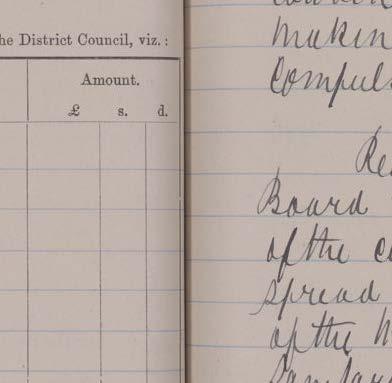 he District Council, viz.:
Amount.
£ s. d.
makin
Compuls
Re
Board
of the c
spread
of the